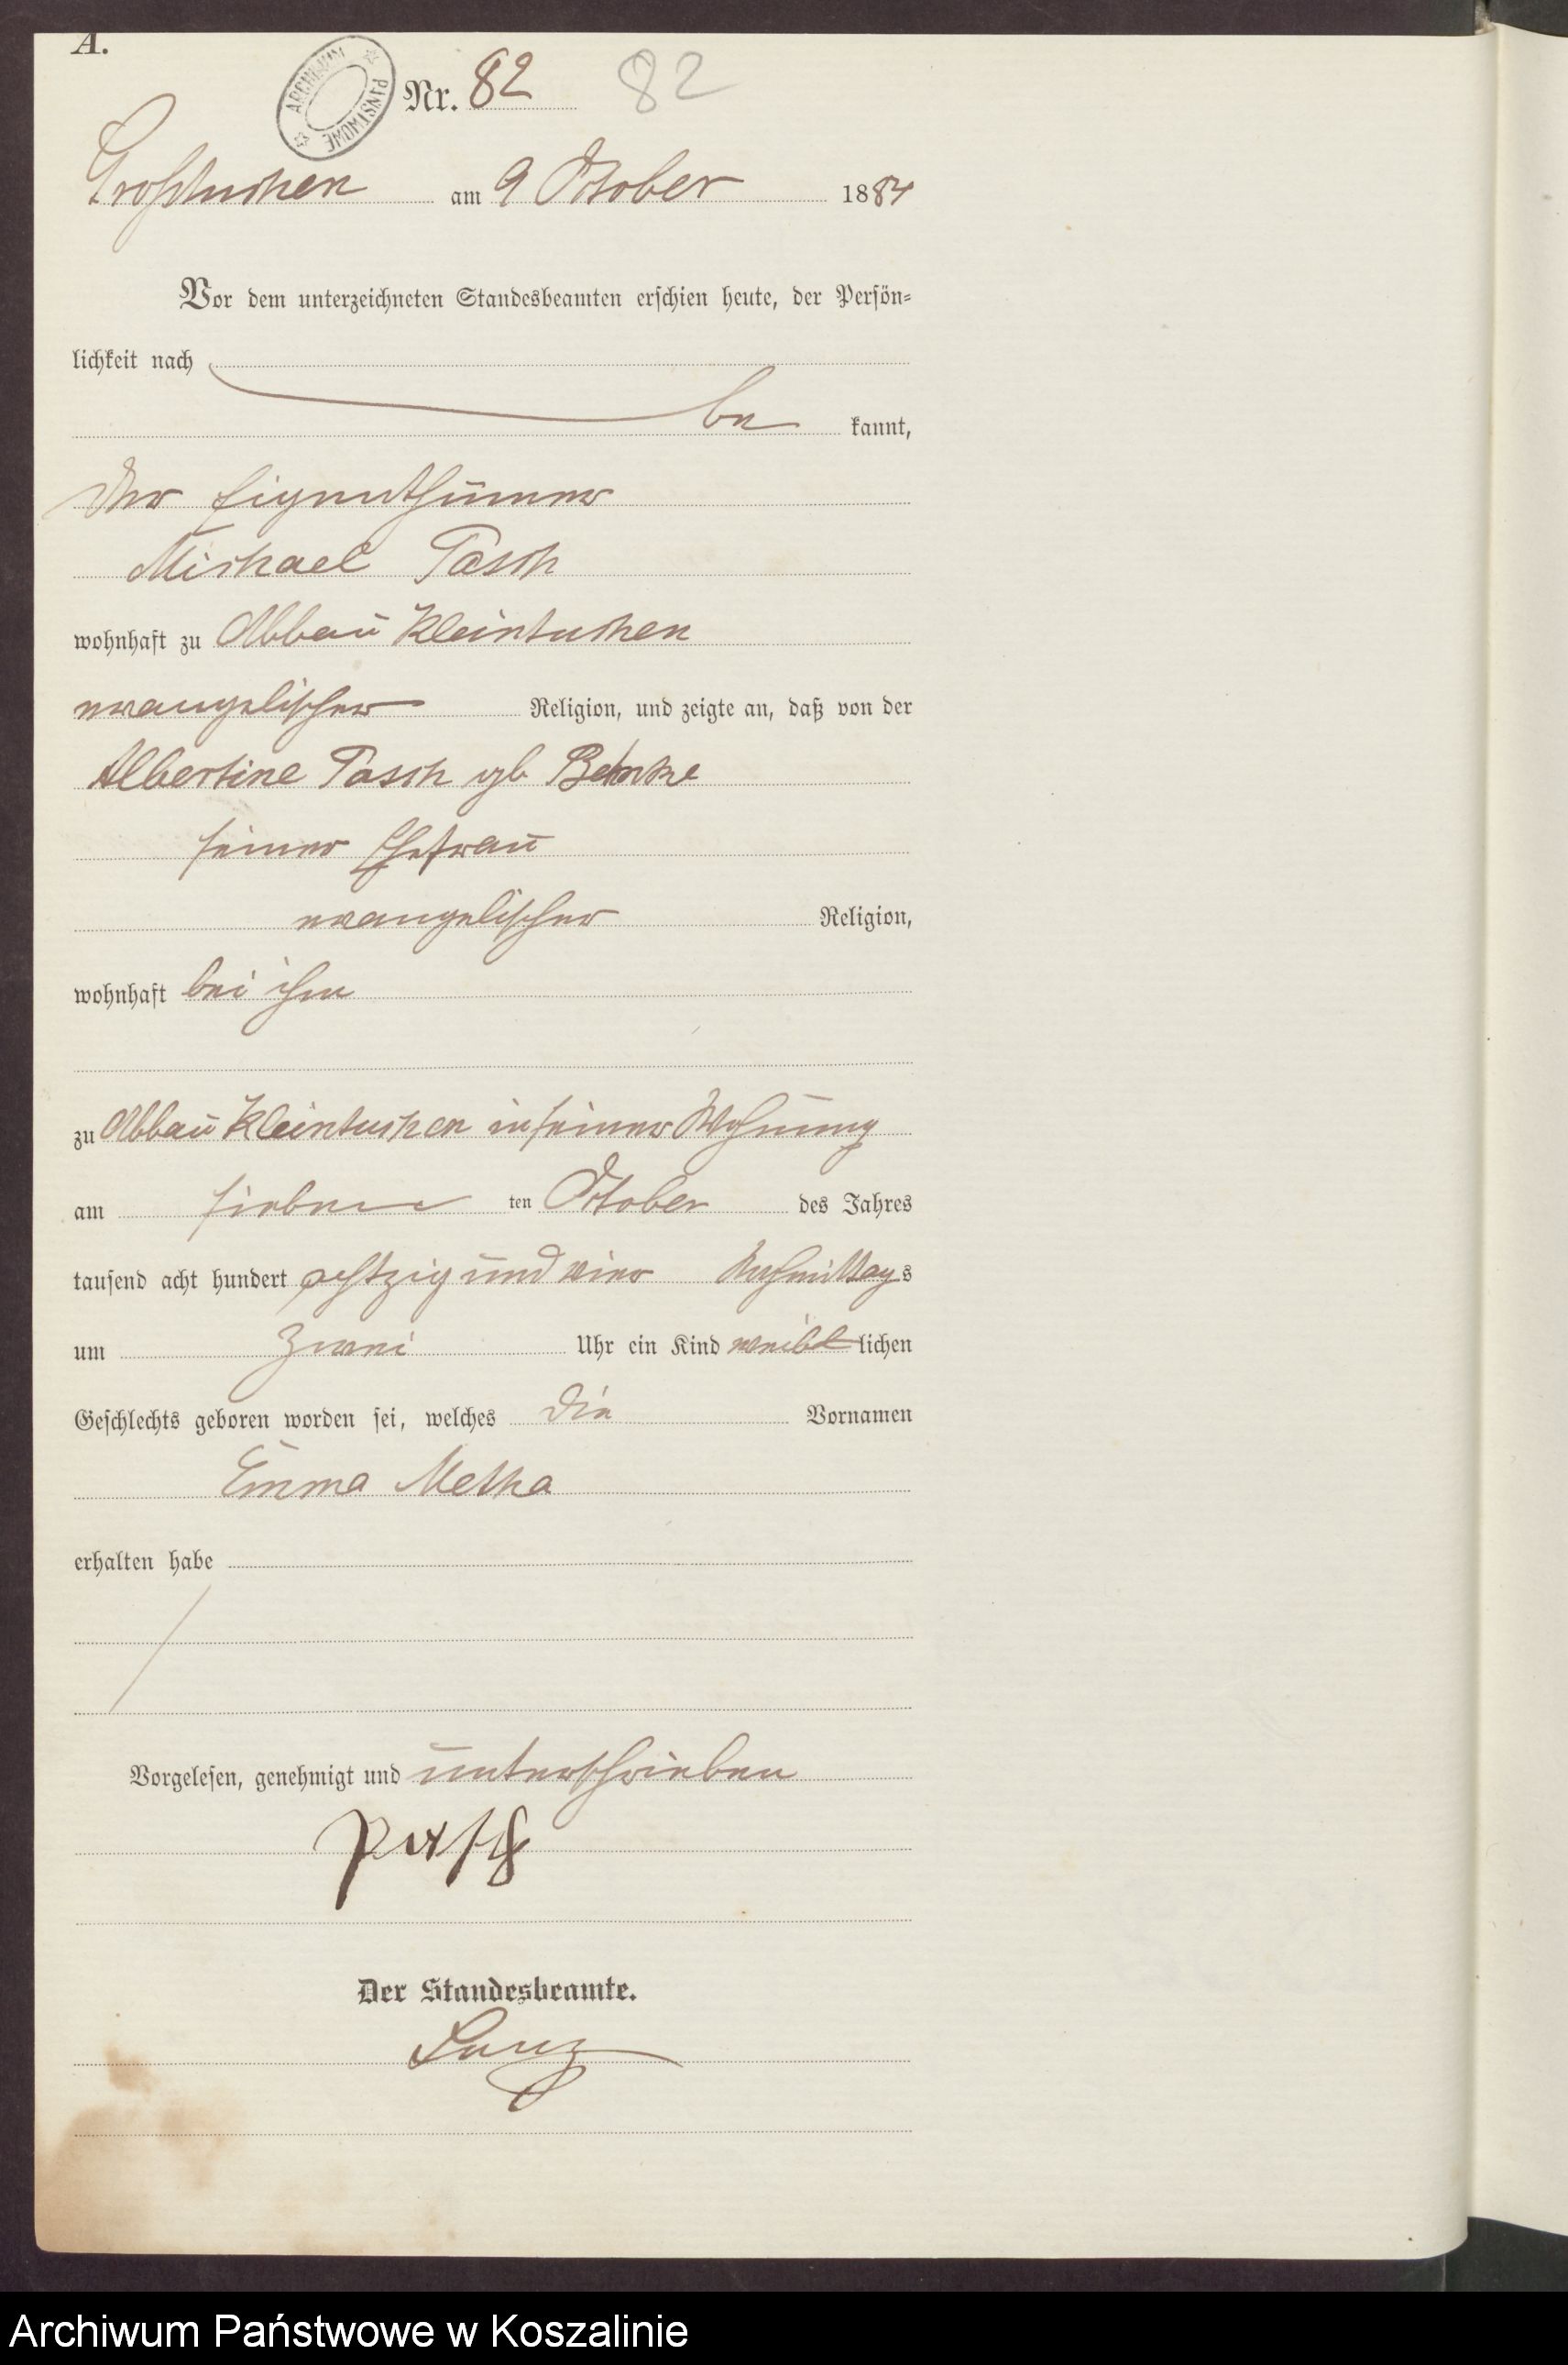 A.
ARCHIWUM PAŃSTWOWE
Nr. 82 82
Großtuchen am 9 October 1884
Vor dem unterzeichneten Standesbeamten erschien heute, der Persön-
lichkeit nach
be kannt,
der Eigenthümer
Michael Pasch
wohnhaft zu Abbau Kleintuchen
evangelischer Religion, und zeigte an, daß von der
Albertine Pasch geb
seiner Ehefrau
evangelischer Religion,
wohnhaft bei ihm
zu Abbau Kleintuchen in seiner Wohnung
am sieben ten October des Jahres
tausend acht hundert achtzig und vier Nachmittags
um zwei Uhr ein Kind weiblichen
Geschlechts geboren worden sei, welches die Vornamen
Emma Metha
erhalten habe
Vorgelesen, genehmigt und unterschrieben
Pasch
Der Standesbeamte.
Archiwum Państwowe w Koszalinie